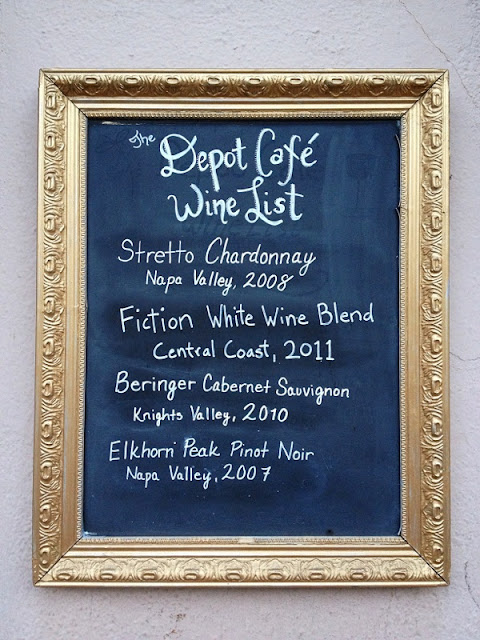 The Depot Café
Wine List
Stretto Chardonnay
Napa Valley, 2008
Fiction White Wine Blend
Central Coast, 2011
Beringer Cabernet Sauvignon
Knights Valley, 2010
Elkhorn Peak Pinot Noir
Napa Valley, 2007